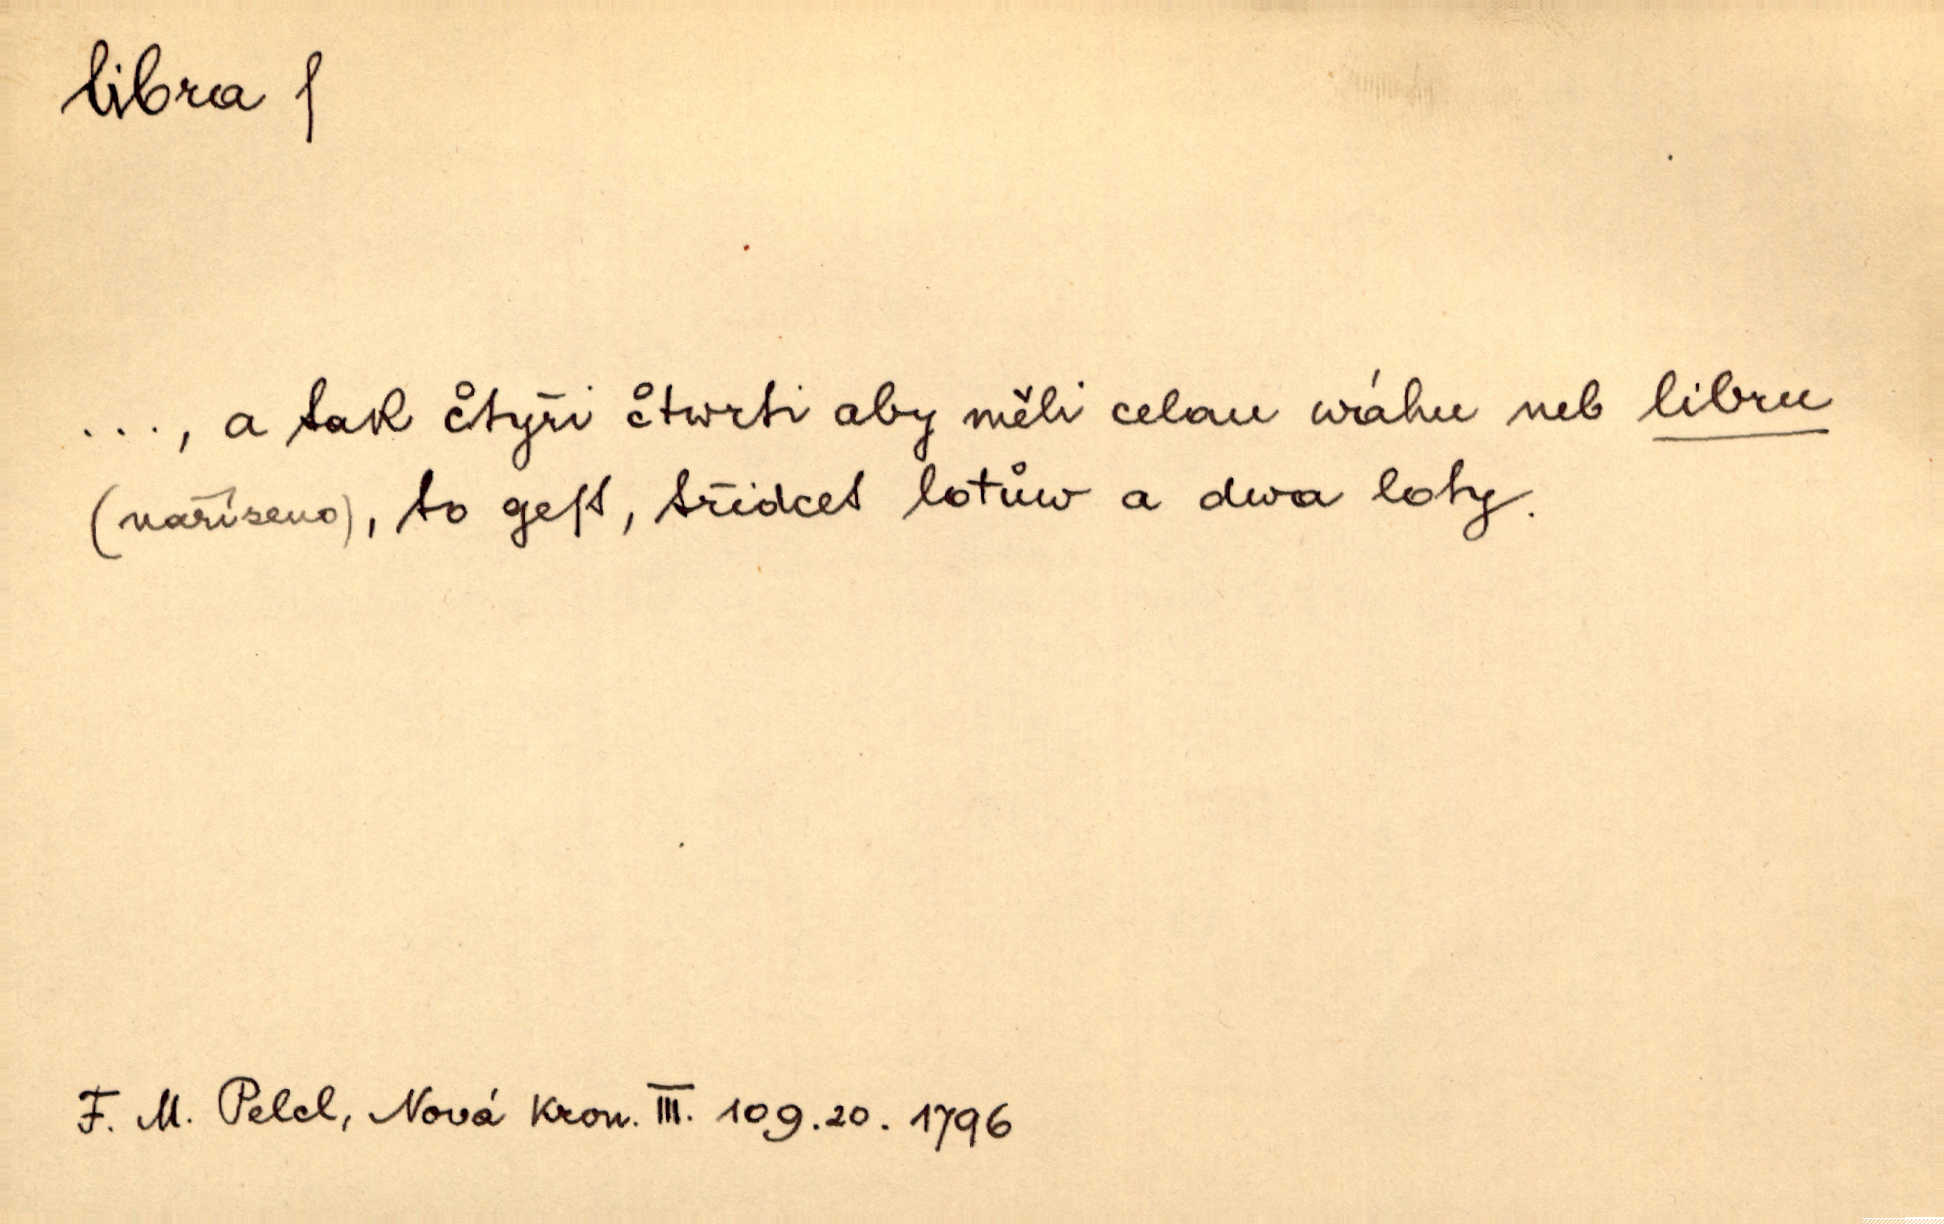 libra f
..., a tak čtyři čtwrti aby měli celau wáhu neb libru
(naříseno), to geſt, třidcet lotůw a dwa loty.
F. M. Pelcl, Nová Kron. III. 109.20. 1796